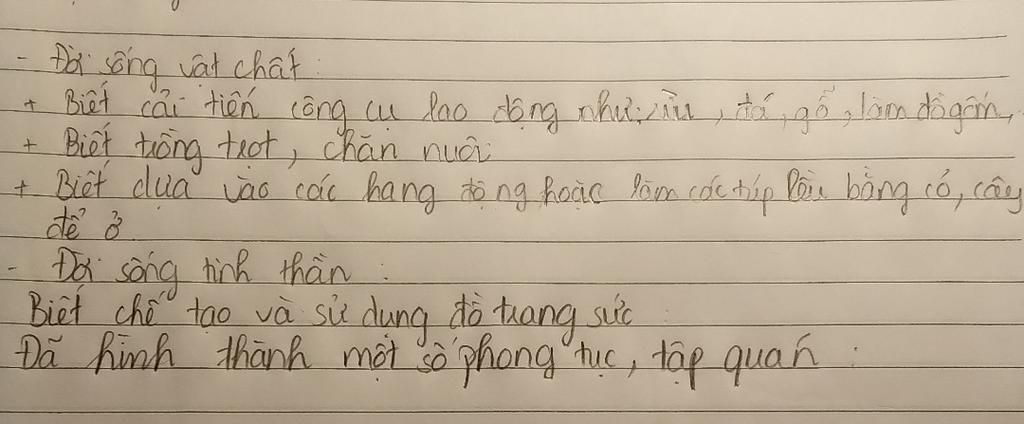 - Đời sống vật chất:
+ Biết cải tiến công cụ lao động như: rìu, đá, gỗ, làm đồ gốm,
+ Biết trồng trọt, chăn nuôi
+ Biết dựa vào các hang động hoặc làm các túp lều bằng cỏ, cây
để ở
- Đời sống tinh thần:
Biết chế tạo và sử dụng đồ trang sức
Đã hình thành một số phong tục, tập quán.